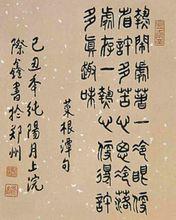 熱鬧處著一冷眼便
省許多苦心思冷落
處存一熱心便得許
多真趣味
菜根潭句
己丑年純陽月上浣
際鑫書於郑州